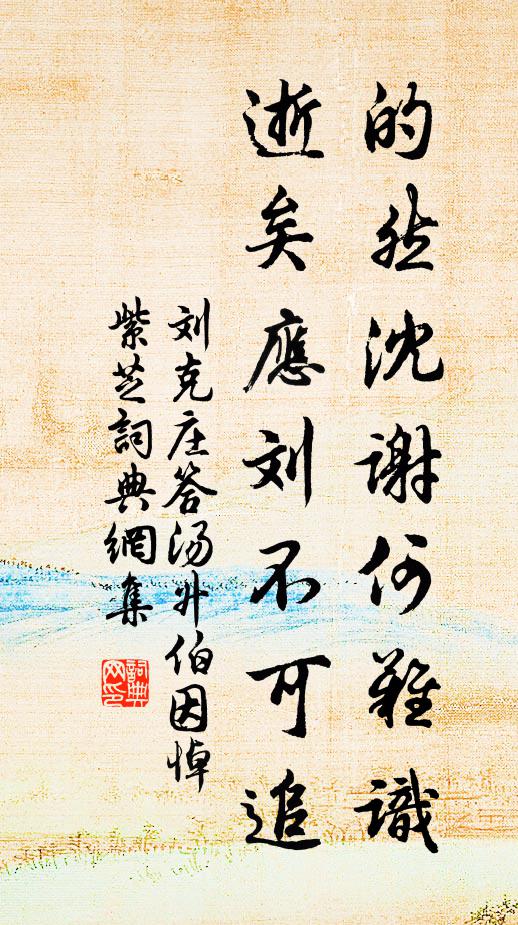 的然沈谢何难識
逝矣應刘不可追
刘克庄答汤升伯因悼
紫芝詞典網集
詞典网印